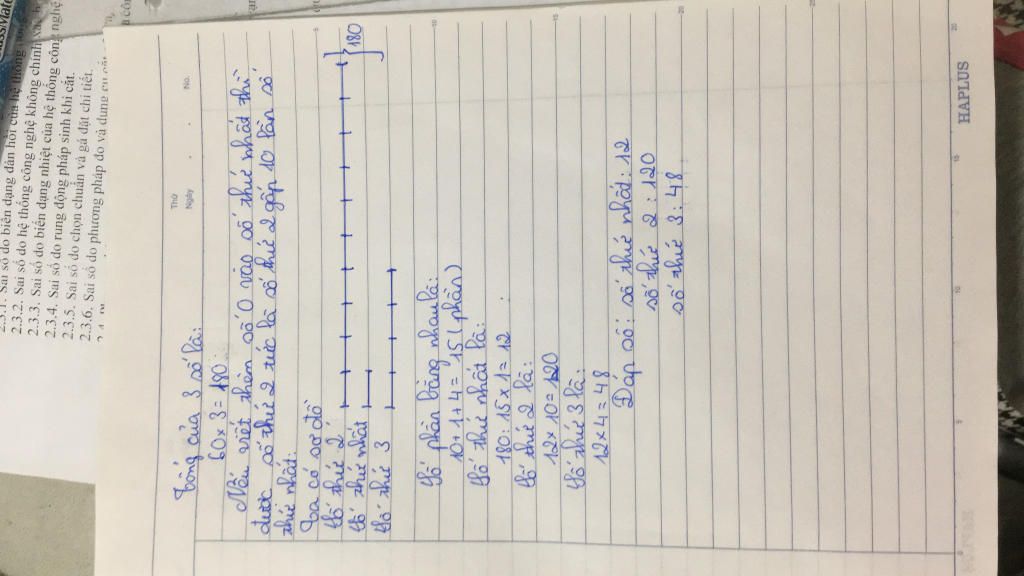 2.3.1. Sai số do biến dạng đàn hồi của hệ thống
2.3.2. Sai số do hệ thống công nghệ không chính
2.3.3. Sai số do biến dạng nhiệt của hệ thống công nghệ
2.3.4. Sai số do rung động pháp sinh khi cắt.
2.3.5. Sai số do chọn chuẩn và gá đặt chi tiết.
2.3.6. Sai số do phương pháp đo và dụng cụ
Thứ
Ngày
No.
Tổng của 3 số là:
60 x 3 = 180
Nếu viết thêm số 0 vào số thứ nhất thì
được số thứ 2 tức là số thứ 2 gấp 10 lần số
thứ nhất.
Ta có sơ đồ
Số thứ 2
Số thứ nhất
Số thứ 3
180
Số phần bằng nhau là:
10 + 1 + 4 = 15 (phần)
Số thứ nhất là:
180 : 15 x 1 = 12
Số thứ 2 là:
12 x 10 = 120
Số thứ 3 là:
12 x 4 = 48
Đáp số: số thứ nhất: 12
số thứ 2 : 120
số thứ 3 : 48
0
5
10
15
20
HAPLUS